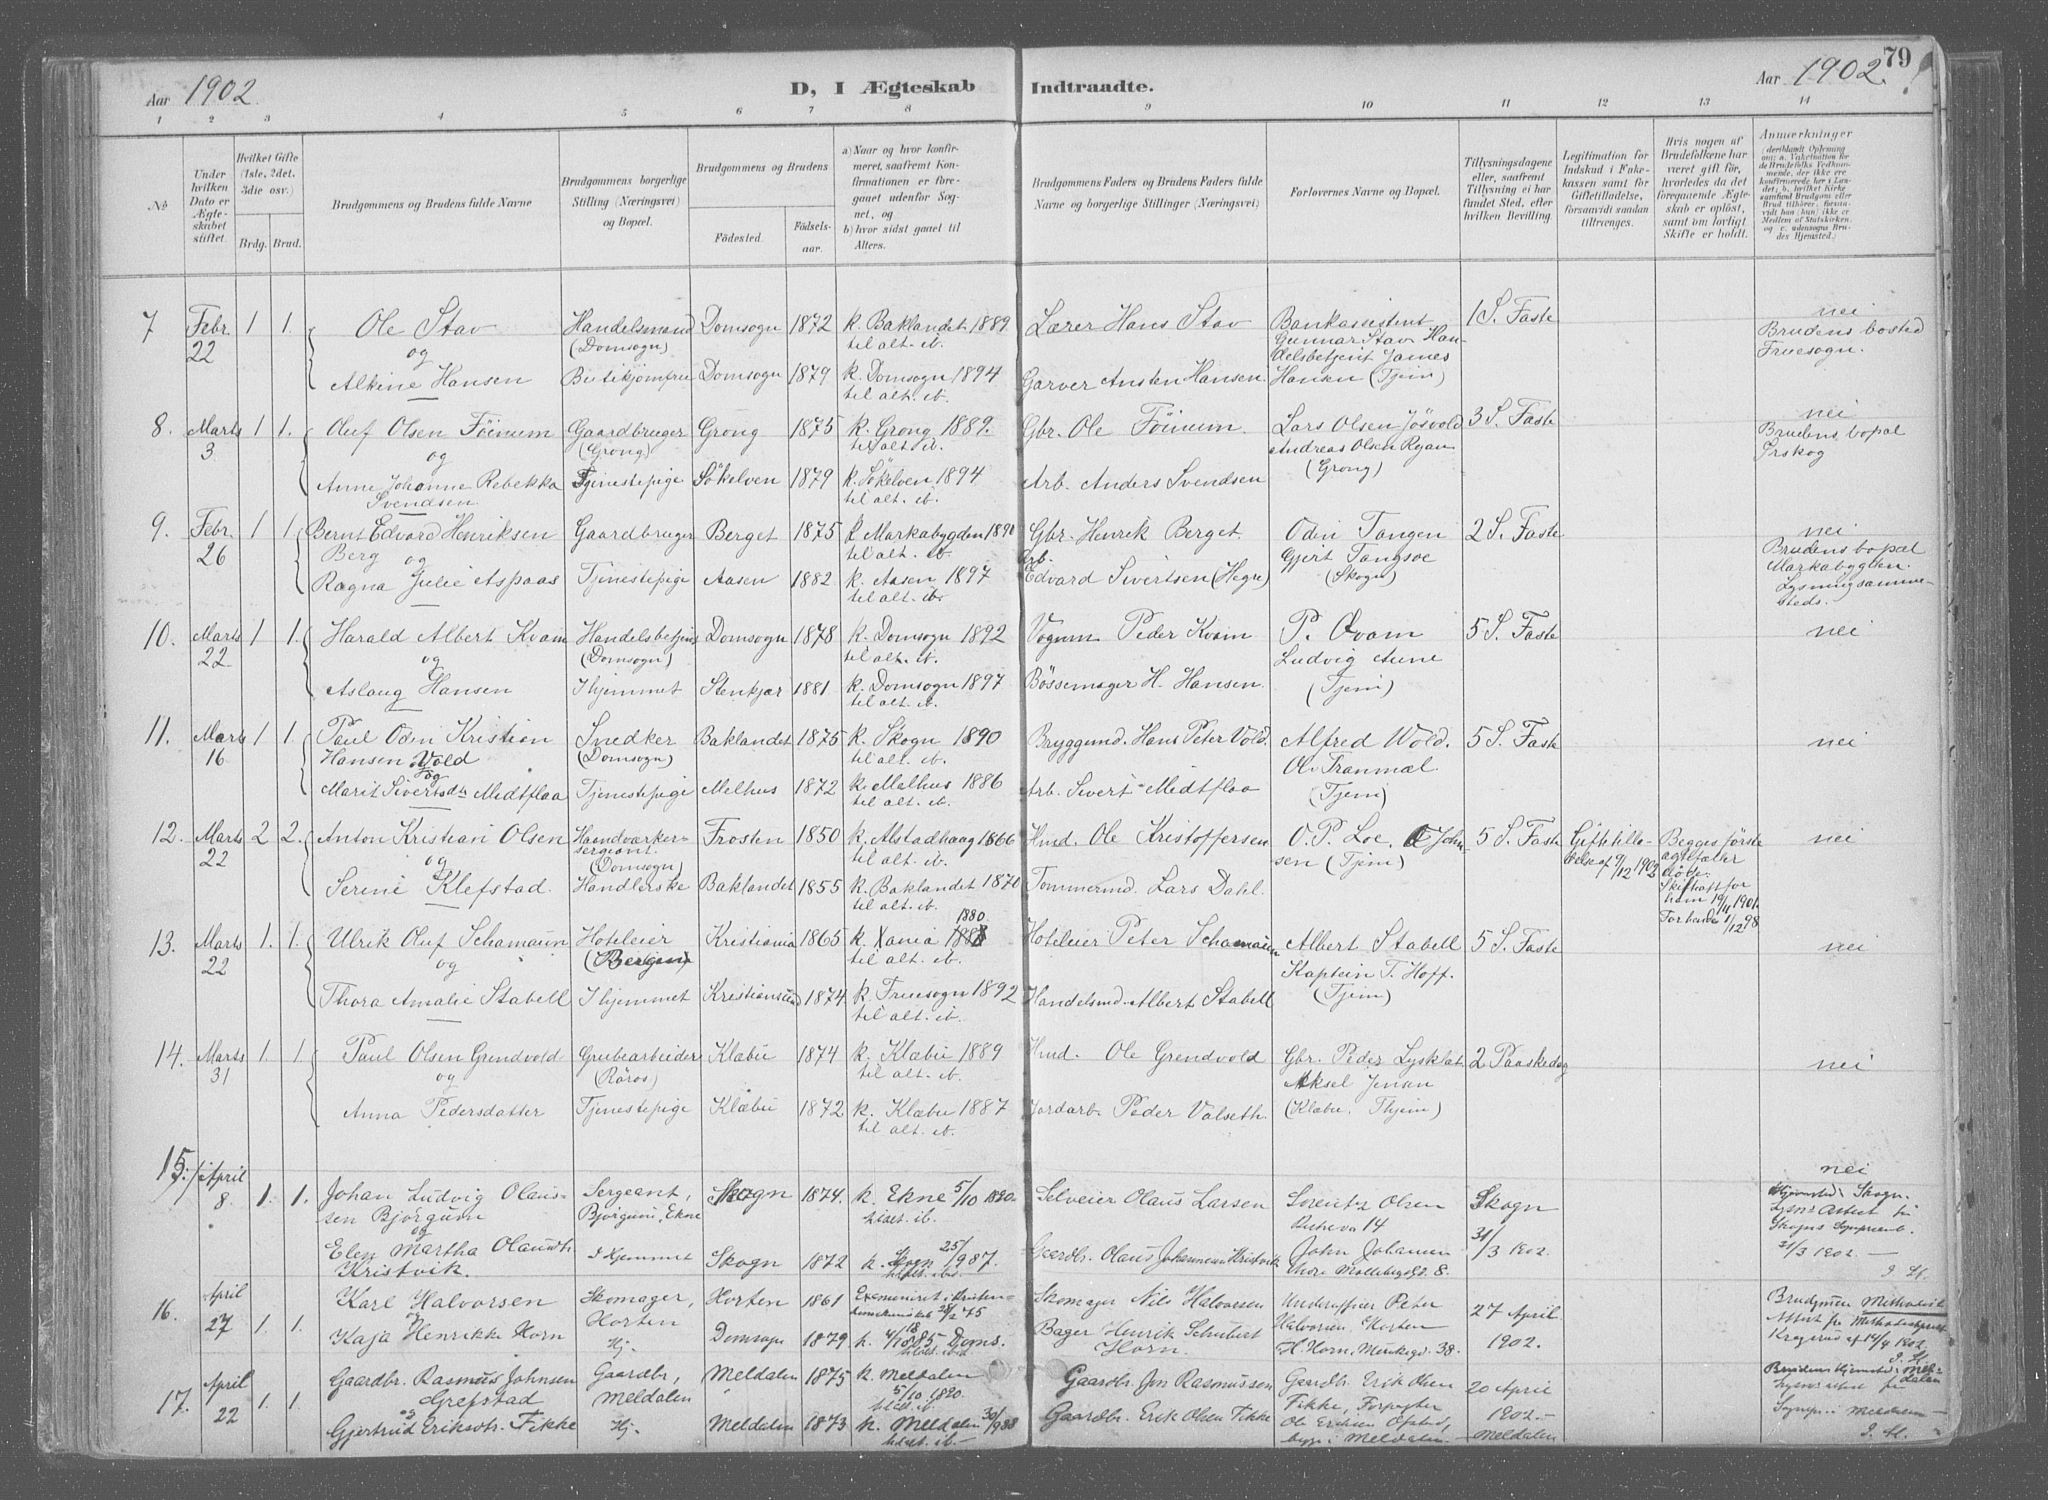 Aar 1902. D, I Ægteskab Indtraadte. Aar 1902. 79
1 2 3 4 5 6 7 8 9 10 11 12 13 14
No
Under hvilken Dato er Ægteskabet stiftet.
Hvilket Gifte (1ste, 2det, 3die osv.)
Brdg. Brud.
Brudgommens og Brudens fulde Navne
Brudgommens borgerlige Stilling (Næringsvei) og Bopæl.
Brudgommens og Brudens
Fødested. Fødselsaar.
a) Naar og hvor konfirmeret, saafremt Konfirmationen er foregaaet udenfor Sognet, og
b) hvor sidst gaaet til Alters.
Brudgommens Faders og Brudens Faders fulde Navne og borgerlige Stillinger (Næringsvei)
Forlovernes Navne og Bopæl.
Tillysningsdagene eller, saafremt Tillysning ei har fundet Sted, efter hvilken Bevilling.
Legitimation for Indskud i Enkekassen samt for Giftetilladelse, forsaavidt saadan tiltrænges.
Hvis nogen af Brudefolkene har været gift før, hvorledes da det foregaaende Ægteskab er opløst, samt om lovligt Skifte er holdt.
Anmærkninger
7 Febr. 22 1 1. Ole Stav Handelsmand (Domsogn) Domsogn 1872 k. Baklandet 1889 til alt. ib. Lærer Hans Stav Bankassistent Gunnar Stav Han- 1 S. Faste nei
og
Alkine Hansen Butikjomfru Domsogn 1879 k. Domsogn 1894 til alt. ib. Garver Ansten Hansen delsbetjent James Hansen (Tjem) Brudens bosted Fruesogn.
8. Marts 3 1 1. Oluf Olsen Föinum Gaardbruger (Grong) Grong 1875 k. Grong 1889. til alt. ib. Gbr. Ole Föinum Lars Olsen Jøsvold 3 S. Faste nei
og
Anne Johanne Rebekka Svendsen Tjenestepige Sökelven 1879 k. Sökelven 1894 til alt. ib. Arb. Anders Svendsen Andreas Olsen (Grong) Brudens bopal Ørskog
9. Febr. 26 1 1 Bernt Edvard Henriksen Berg Gaardbruger Berget 1875 k Markabygden 1890 til alt. ib. Gbr. Henrik Berget. Odin Tangen 2 S. Faste nei
og
Ragna Julie Aspaas Tjenestepige Aasen 1882 k. Aasen 1897 til alt. ib. Arb. Edvard Sivertsen (Hegn) Gjert (Skogn) Brudens bopal Markabygden. Lysning samme- steds.
10. Marts 22 1 1. Harald Albert Kvam Handelsbetjent (Domsogn) Domsogn 1878 k. Domsogn 1892 til alt. ib. Vognm Peder Kvam P. Qvam 5 S. Faste nei
og
Aslaug Hansen I hjemmet Stenkjær 1881 k. Domsogn 1897 til alt. ib. Bössemager H. Hansen. Ludvig Aune (Tjem)
11. Marts 16 1 1. Paul Odin Kristian Hansen Vold Snedker (Domsogn) Baklandet 1875 k. Skogn 1890 til alt. ib. Bryggemd. Hans Peter Vold. Alfred Wold. 5 S. Faste nei
og
Marit Sivertsdtr Midtflaa Tjenestepige Melhus 1872 k. Melhus 1886 til alt. ib. Arb. Sivert Midtflaa Ole Tranmæl. (Tjem)
12. Marts 22 2 2. Anton Kristian Olsen Haandværkersergeant. (Domsogn) Frosten 1850 k. Alstadhaug 1866 til alt. ib. Hmd. Ole Kristoffersen O. P. Loe, O John- 5 S. Faste Giftetilladelse af 9/12 1902 Begges første ægtefæller døde. Skifteatt for ham 19/4 1901. For hende 1/12 98 nei
og
Serine Klefstad. Handlerske Baklandet 1855 k. Baklandet 1870 til alt. ib. Tømmermd. Lars Dahl. sen (Tjem)
13. Marts 22 1. 1. Ulrik Oluf Schamaun Hoteleier (Bergen) Kristiania 1865 k. Xania 1880 til alt. ib. Hoteleier Peter Schamaun Albert Stabell 5 S. Faste nei
og
Thora Amalie Stabell I hjemmet Kristiansund 1874 k. Fruesogn 1892 til alt. ib. Handelsmd. Albert Stabell Kaptein T. Hoff. (Tjem)
14. Marts 31 1. 1. Paul Olsen Grendvold Grubearbeider (Röros) Klæbu 1874 k. Klæbu 1889 til alt. ib. Hmd. Ole Grendvold Gbr. Peder 2 Paaskedag nei
og
Anna Pedersdatter Tjenestepige Klæbu 1872 k. Klæbu 1887 til alt. ib. Jordarb. Peder Valseth. Aksel Jensen (Klæbu. Thjem)
15. April 8 1. 1. Johan Ludvig Olaussen Bjorgum Sergeant, Bjorgum, Ekne Skogn 1874. k. Ekne 5/10 1890. sidst. ib. Selveier Olaus Larsen Lorentz Olsen 14 Skogn 31/3 1902. nei
og
Elen Martha Olausdtr. Kristvik. I Hjemmet Skogn 1872 k. Skogn 25/9 87. sidst. ibd. Gaardbr. Olaus Johannesen Kristvik John Johansen Møllebergsgd. 8. Hjemsted: Skogn. 31/3 1902.
16. April 27 1. 1. Karl Halvorsen Skomager, Horten Horten 1861 Examineret i Kristendomskundskab 28/2 75 Skomager Nils Halvorsen Underofficer Peter Halvorsen, Horten 27 April 1902. Brudgommen Methodist
og
Kaja Henrikke Horn Hj. Domsogn 1879 k. 4/10 1885 Doms. sidst. ibd Bager Henrik Schubert Horn. H. Horn, Munkegd. 38. Kragerø af 14/4 1902
17. April 22 1. 1. Gaardbr. Rasmus Johnsen Grefstad Gaardbr, Meldalen Meldalen 1875 k. Meldalen 5/10 1890. sidst. ib. Gaardbr. Jon Rasmussen Gaardbr. Erik Olsen Fikke, Forpagter 20 April 1902. Meldalen Brudens Hjemsted: Meldalen
og
Gjertrud Eriksdtr. Fikke Hj. Meldalen 1873 k. Meldalen 30/9 88 sidst. ib. Gaardbr. Erik Olsen Fikke Ole Eriksen begge i Meldalen